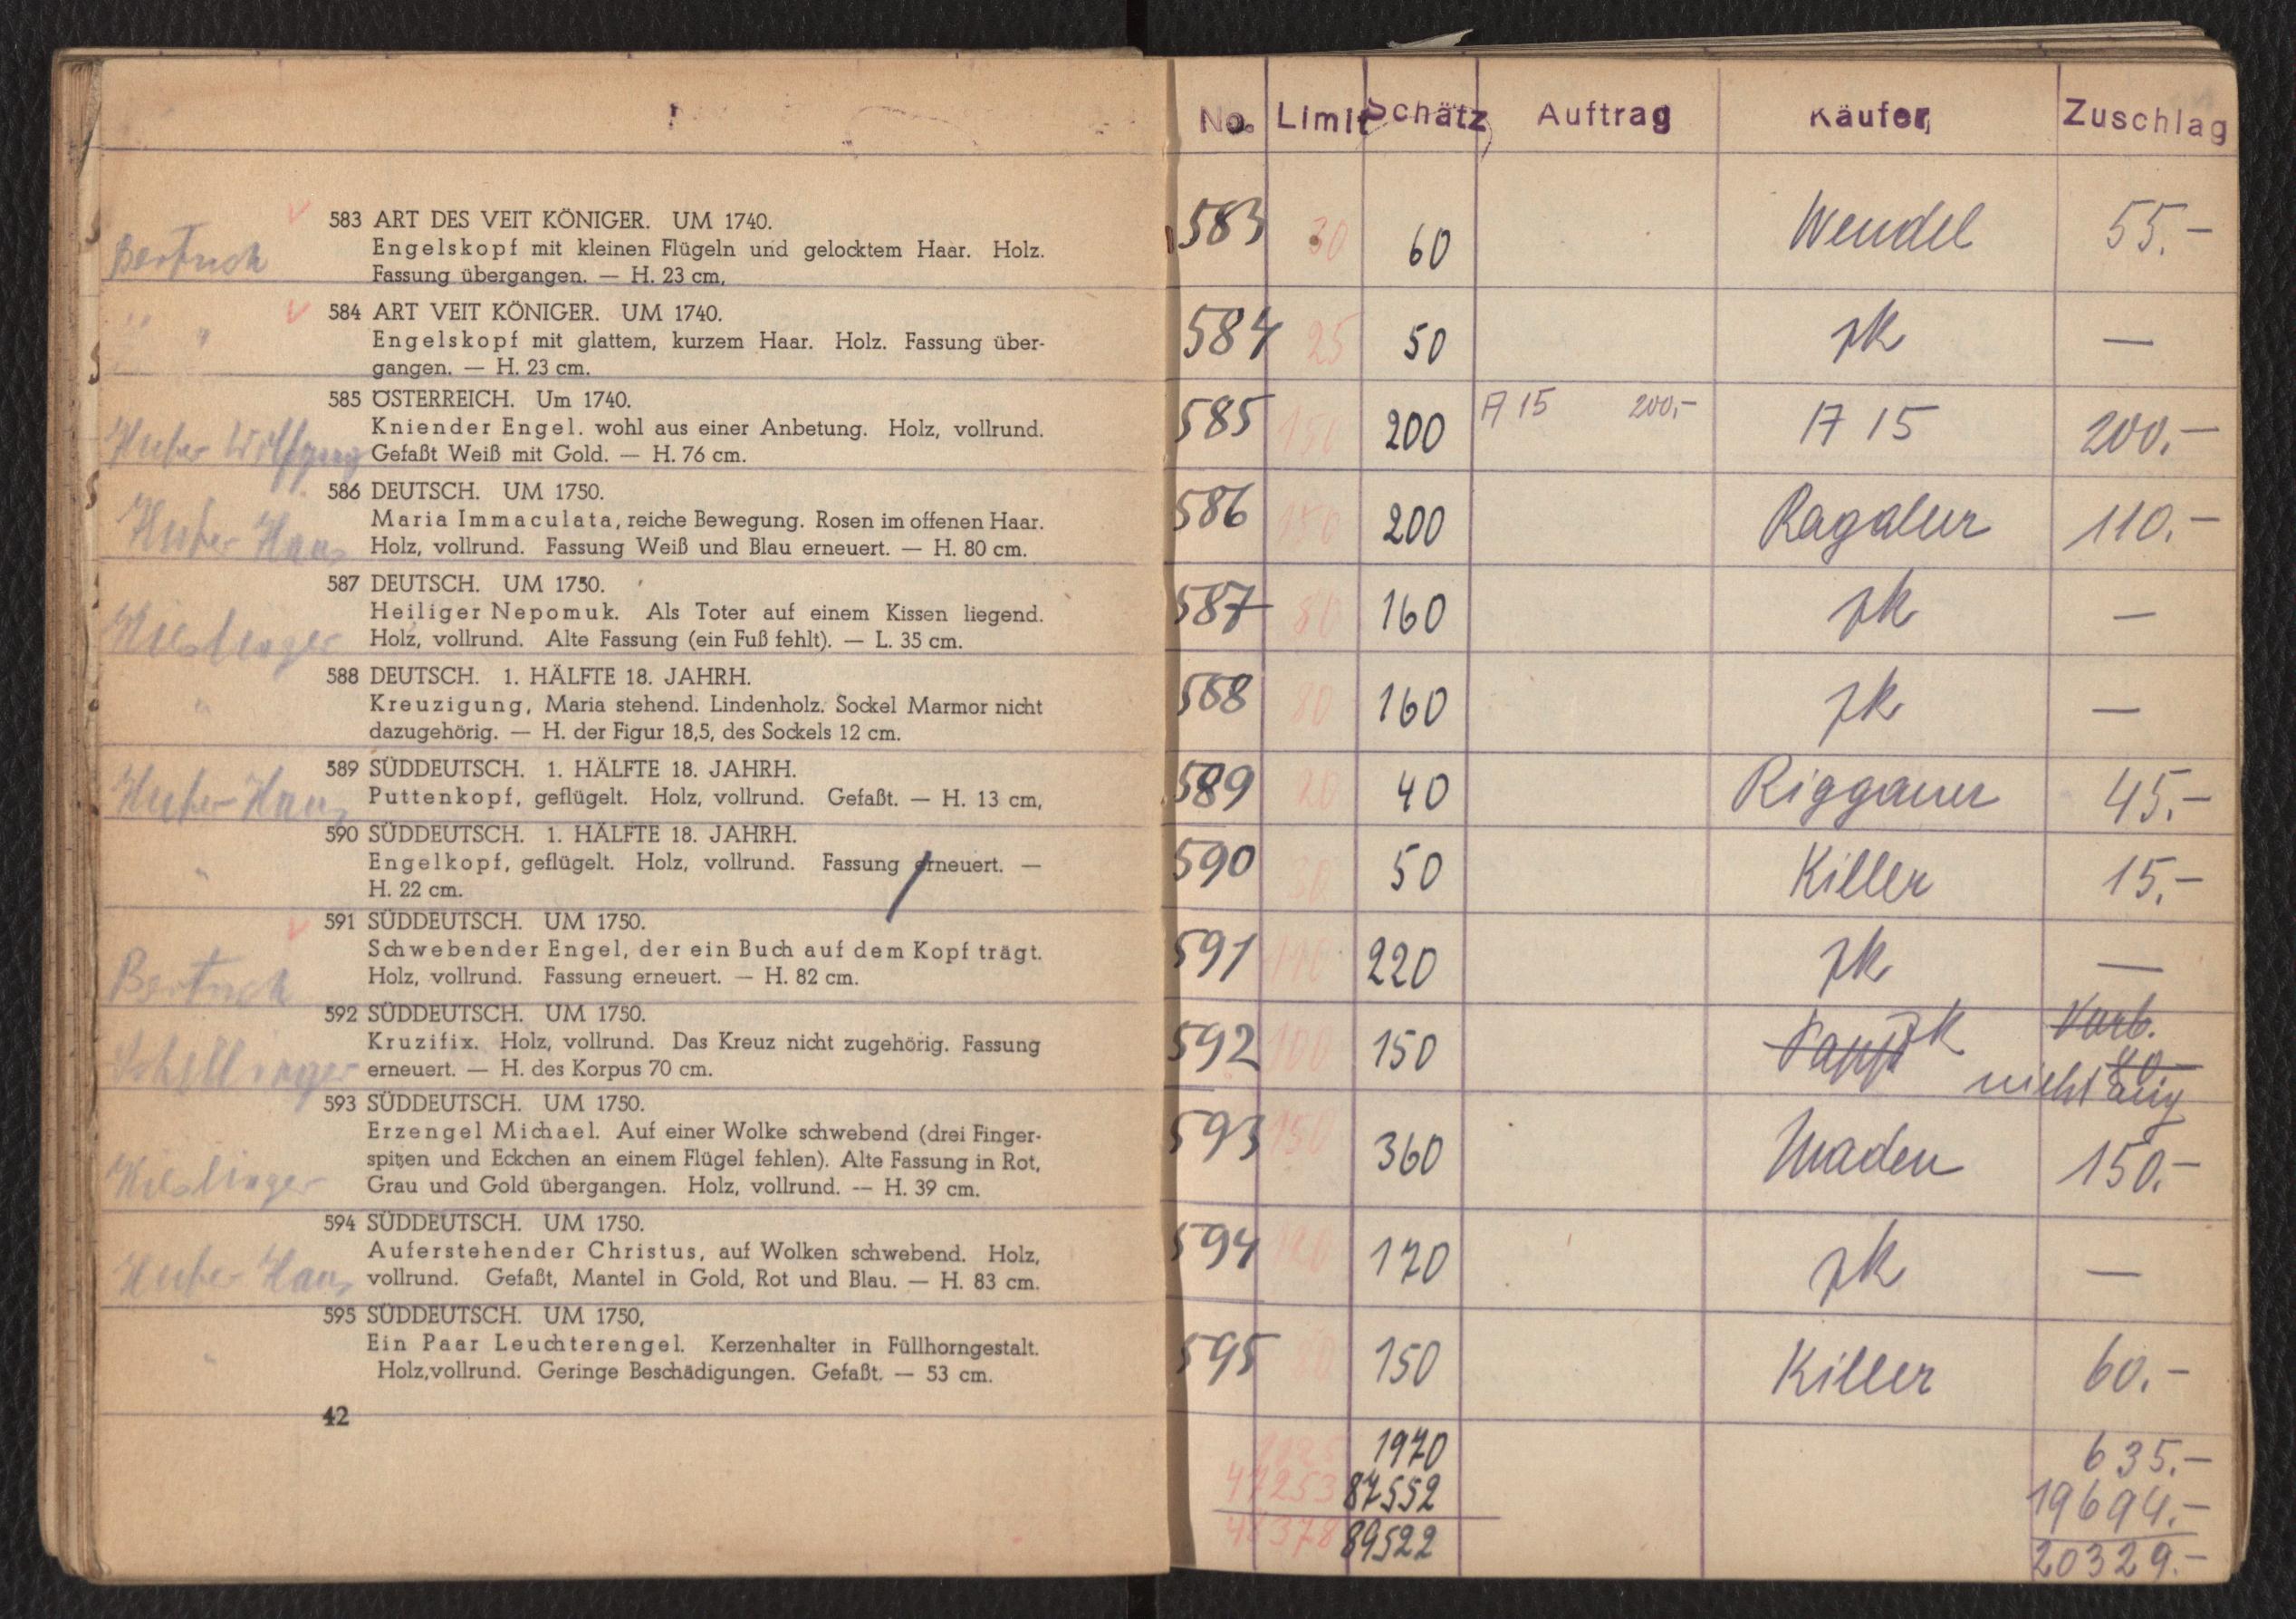 583 ART DES VEIT KÖNIGER. UM 1740.
Engelskopf mit kleinen Flügeln und gelocktem Haar. Holz.
Bertuch
Fassung übergangen. — H. 23 cm,
584 ART VEIT KÖNIGER. UM 1740.
" "
Engelskopf mit glattem, kurzem Haar. Holz. Fassung über-
gangen. — H. 23 cm.
585 ÖSTERREICH. Um 1740.
Kniender Engel. wohl aus einer Anbetung. Holz, vollrund.
Huber Wolfgang
Gefaßt Weiß mit Gold. — H. 76 cm.
586 DEUTSCH. UM 1750.
Maria Immaculata, reiche Bewegung. Rosen im offenen Haar.
Huber Hans
Holz, vollrund. Fassung Weiß und Blau erneuert. — H. 80 cm.
587 DEUTSCH. UM 1750.
Heiliger Nepomuk. Als Toter auf einem Kissen liegend.
Kieslinger
Holz, vollrund. Alte Fassung (ein Fuß fehlt). — L. 35 cm.
588 DEUTSCH. 1. HÄLFTE 18. JAHRH.
"
Kreuzigung, Maria stehend. Lindenholz. Sockel Marmor nicht
dazugehörig. — H. der Figur 18,5, des Sockels 12 cm.
589 SÜDDEUTSCH. 1. HÄLFTE 18. JAHRH.
Huber Hans
Puttenkopf, geflügelt. Holz, vollrund. Gefaßt. — H. 13 cm,
590 SÜDDEUTSCH. 1. HÄLFTE 18. JAHRH.
"
Engelkopf, geflügelt. Holz, vollrund. Fassung erneuert. —
H. 22 cm.
591 SÜDDEUTSCH. UM 1750.
Schwebender Engel, der ein Buch auf dem Kopf trägt.
Bertuch
Holz, vollrund. Fassung erneuert. — H. 82 cm.
592 SÜDDEUTSCH. UM 1750.
Kruzifix. Holz, vollrund. Das Kreuz nicht zugehörig. Fassung
Schellinger
erneuert. — H. des Korpus 70 cm.
593 SÜDDEUTSCH. UM 1750.
Erzengel Michael. Auf einer Wolke schwebend (drei Finger-
spitzen und Eckchen an einem Flügel fehlen). Alte Fassung in Rot,
Kieslinger
Grau und Gold übergangen. Holz, vollrund. — H. 39 cm.
594 SÜDDEUTSCH. UM 1750.
Auferstehender Christus, auf Wolken schwebend. Holz,
Huber Hans
vollrund. Gefaßt, Mantel in Gold, Rot und Blau. — H. 83 cm.
595 SÜDDEUTSCH. UM 1750,
"
Ein Paar Leuchterengel. Kerzenhalter in Füllhorngestalt.
Holz, vollrund. Geringe Beschädigungen. Gefaßt. — 53 cm.
42
No. Limit Schätz Auftrag Käufer Zuschlag
583 30 60 Wendel 55.-
584 25 50 zk —
585 150 200 A 15 200,- A 15 200.-
586 150 200 110.-
587 80 160 zk —
588 80 160 zk —
589 20 40 Riggauer 45.-
590 30 50 Killer 15.-
591 220 zk —
592 100 150 zk Vorb.
nicht
593 150 360 Maden 150.-
594 120 170 zk —
595 80 150 Killer 60.-
1970 635.-
47253 87552 19694.-
48378 89522 20329.-